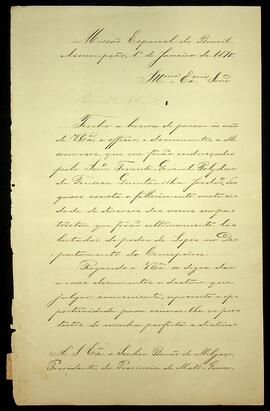 Missão Especial do Brasil
Assumpção, 1º de Janeiro de 1870.
Illmo e Exmo Snr.
Tenho a honra de passar ás mãos
de V. Exª o officio e documentos
que me forão endereçados
pelo Snr. Tenente General Polydoro
da Fonseca Quintanilha Jordão, dos
quaes consta o fallecimento nesta ci
dade de diversos dos nossos compa
triotas que forão ultimamente li
bertados do poder de Lopez no De
partamento da Conceição.
Rogando a V. Exª se digne dar
a esses documentos o destino que
julgar conveniente, aproveito a op
portunidade para renovar-lhe os pro
testos de minha perfeita e distincta
A S. Exª o Senhor Barão de Melgaço,
Presidente da Provincia de Mato-Grosso.